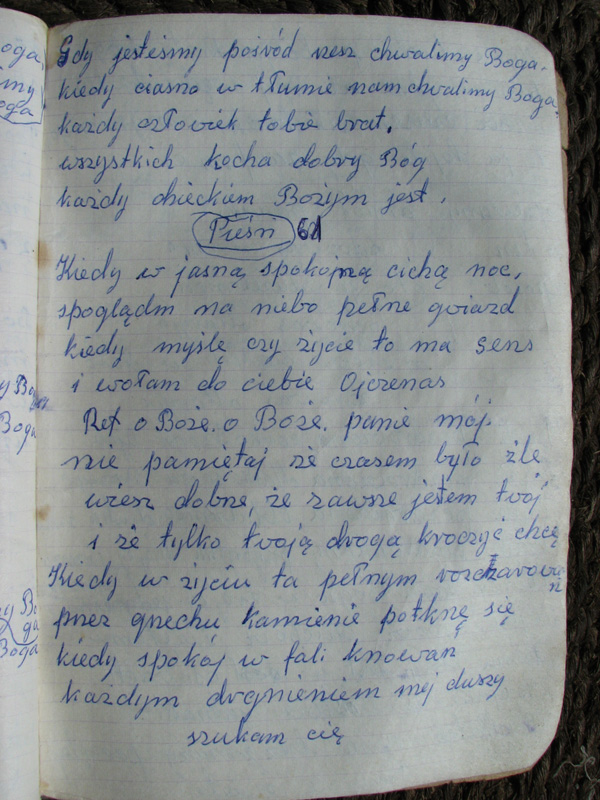 Gdy jesteśmy pośvód rzesz chwalimy Boga.
kiedy ciasno w tłumie nam chwalimy Boga.
każdy człoviek tobie brat.
wszystkich kocha dobry Bóg
każdy dzieckiem Bożym jest.
Pieśń 61
Kiedy w jasną spokojną cichą noc,
spoglądm na niebo pełne gviazd
kiedy myślę czy życie to ma sens
i wołam do ciebie Ojczenas
Ref o Boże. o Boże. panie mój
nie pamiętaj że czasem było źle
wiesz dobrze, że zawsze jestem tvój
i że tylko tvoją drogą kroczyć chcę
Kiedy w życiu ta pełnym
przez grzechu kamienie potknę się
kiedy spokój w fali knowań
każdym drgnieniem mej duszy
szukam cię
oga
my
oga
Boga
Boga
ga
Boga